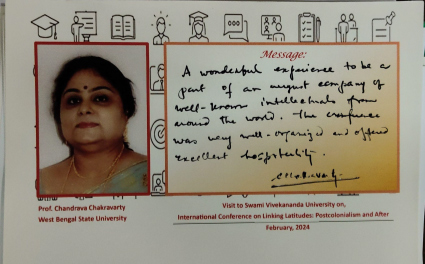 Message:
A wonderful experience to be a
part of an august company of
well-known intellectuals from
around the world. The conference
was very well-organized and offered
excellent hospitality.
Prof. Chandrava Chakravarty
West Bengal State University
Visit to Swami Vivekananda University on,
International Conference on Linking Latitudes: Postcolonialism and After
February, 2024